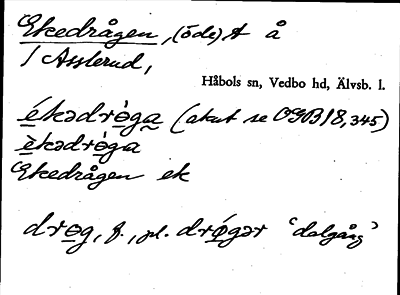 Ekedrågen, (öde) t å
/ Asslerud,
Håbols sn, Vedbo hd, Älvsb. l.
ékədrò̱ga (akut se OGB 18, 345)
èkədró̱ga
Ekedrågen ek
dro̱g, f., pl. drǿ̱gər ‘dalgång’